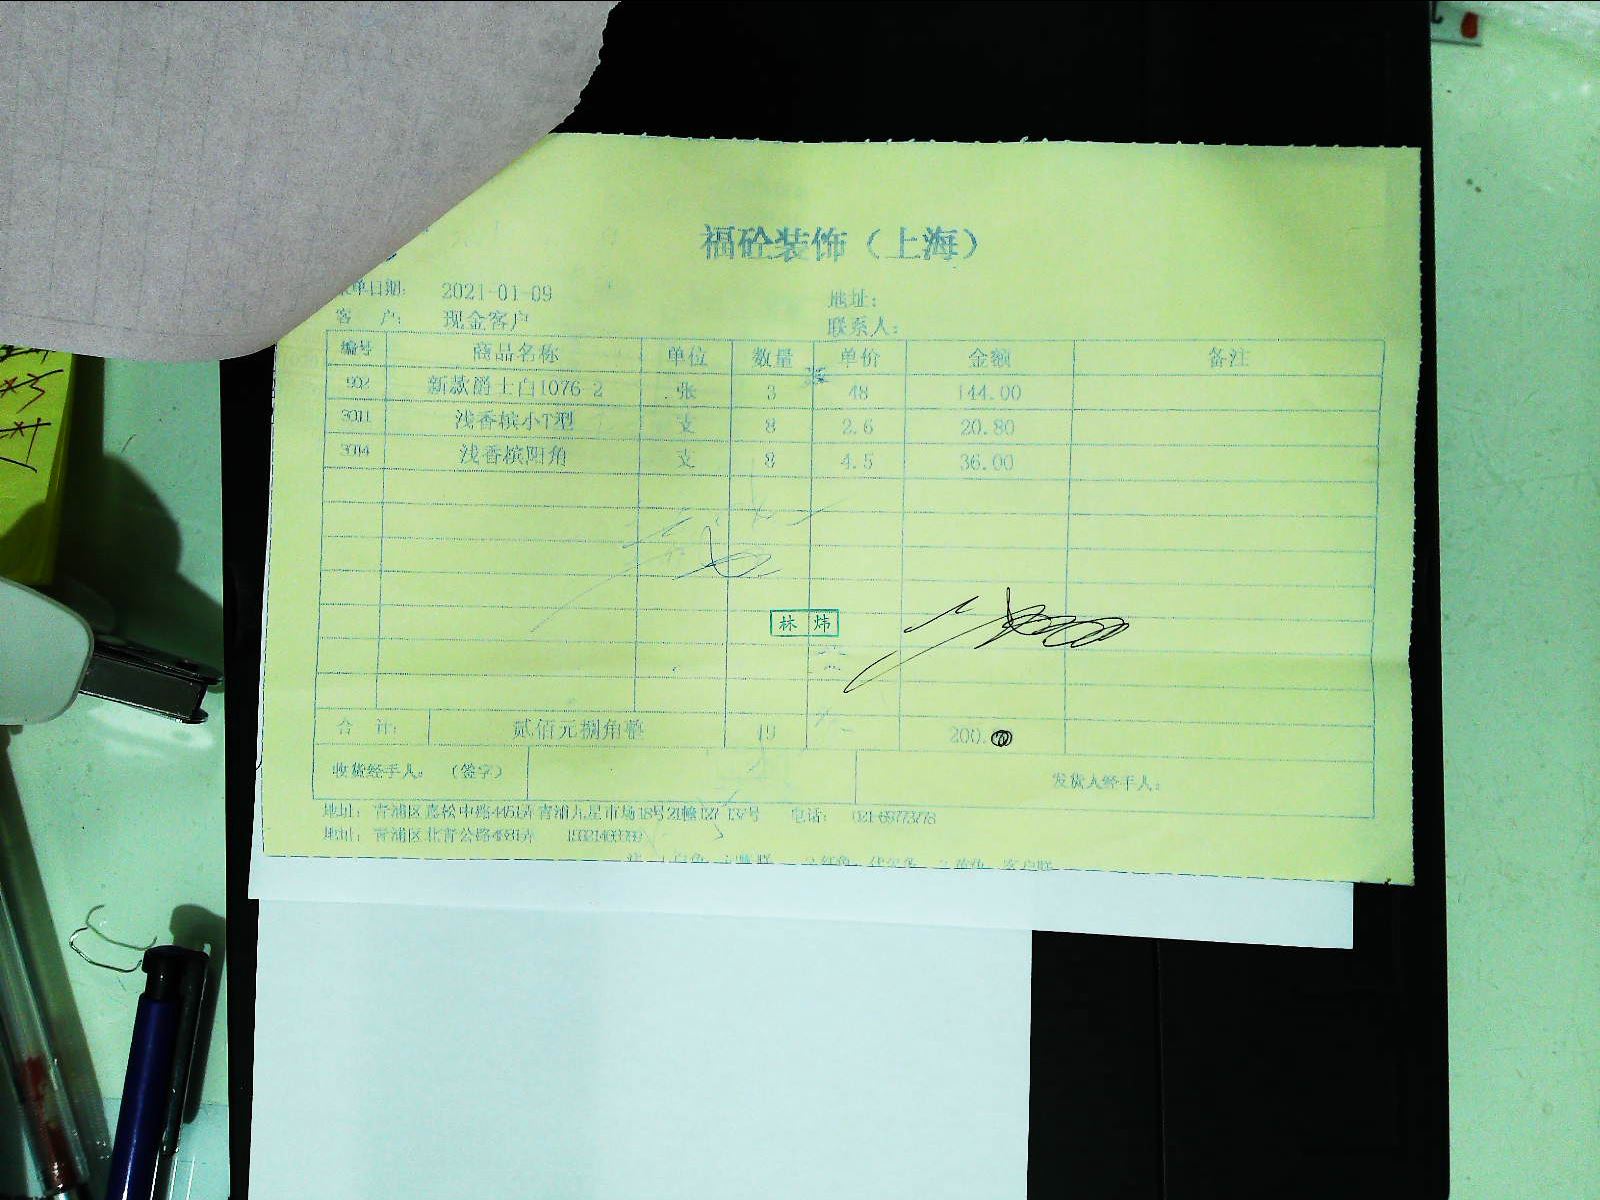 福砼装饰（上海）
单日期: 2021-01-09 地址:
客 户: 现金客户 联系人:
编号 商品名称 单位 数量 单价 金额 备注
902 新款爵士白1076-2 张 3 48 144.00
3011 浅香槟小T型 支 8 2.6 20.80
3014 浅香槟阳角 支 8 4.5 36.00
林 炜
合 计: 贰佰元捌角整 19 200.
收货经手人: （签字） 发货人经手人:
地址: 青浦区嘉松中路4451弄青浦九星市场18号21幢127 137号 电话:
地址: 青浦区北青公路4981弄